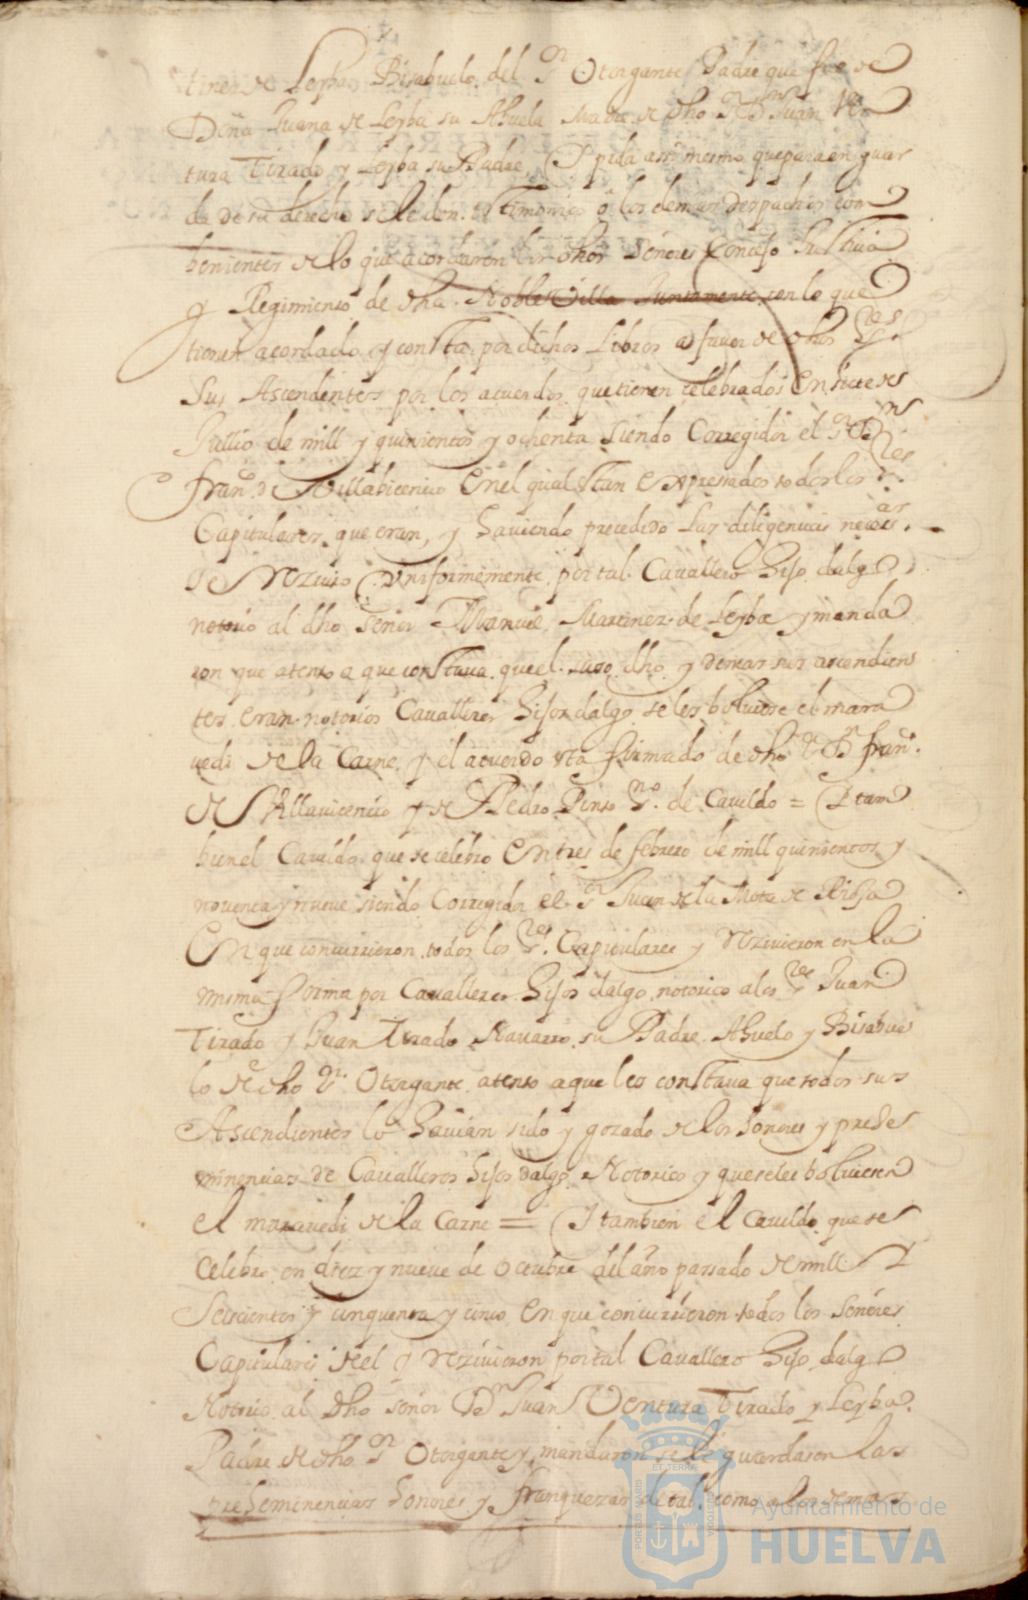 tinez de Leyba Bisabuelo del Sr Otorgante Padre que fue de
Doña Juana de Leyba su Abuela Madre de dho Sr Dn Juan Ven
tura Tirado y Leyba su Padre, Y pida assi mesmo que para en guar
da de su derecho se le den testimonios o los demas despachos con
benientes de lo que acordaron los dhos Señores Consejo Justicia
y Regimiento de dha Noble Villa Juntamente con lo que
tienen acordado y consta por dichos Libros a favor de dhos Sres
Sus Ascendentes por los acuerdos que tienen celebrados En siete de
Jullio de mill y quinientos y ochenta siendo Corregidor el Sr Dn
Franco de Villabicencio En el qual stan Expresados todos los Sres
Capitulares que eran, y haviendo precedido las diligencias necesas
se Rzivio Vniformemente por tal Cavallero hijo dalgo
notorio al dho Señor Manuel Martinez de Leyba y manda
ron que atento a que constava que el suso dho y demas sus ascendien
tes eran notorios Cavalleros hijos dalgo se les bolviese el mara
vedi de la Carne, y el acuerdo sta firmado de dho Sr Dn Franco
de Villavicencio y de Pedro Pinto sno de Cavildo = Y tam
bien el Cavildo que se celebro En tres de febrero de mill quinientos y
noventa y nueve siendo Corregidor el Sr Juan de la Mota de Rioja
En que concurrieron todos los Sres Capitulares y Rzivieron en la
misma forma por Cavalleros hijos dalgo notorios a los Sres Juan
Tirado y Juan Tirado Navarro su Padre Abuelo y Bisabue
lo de dho Sr Otorgante atento a que les constava que todos sus
Ascendientes lo havian sido y gozado de los honores y prehe
minencias de Cavalleros hijos dalgo Notorios y que se les bolviesen
el maravedi de la Carne = Y tambien el Cavildo que se
Celebro en diez y nueve de Octubre del año passado de mill
Seiscientos y cinquenta y cinco En que concurrieron todos los Señores
Capitulares de el y Rzivieron por tal Cavallero hijo dalgo
Notorio al dho señor Dn Juan Ventura Tirado y Leyba
Padre de dho Sr Otorgante y mandaron se le guardasen las
preheminencias honores y franquezas de tal como a los demas
PORTUS MARIS
ET TERRAE
CUSTODIA
Ayuntamiento de
HUELVA